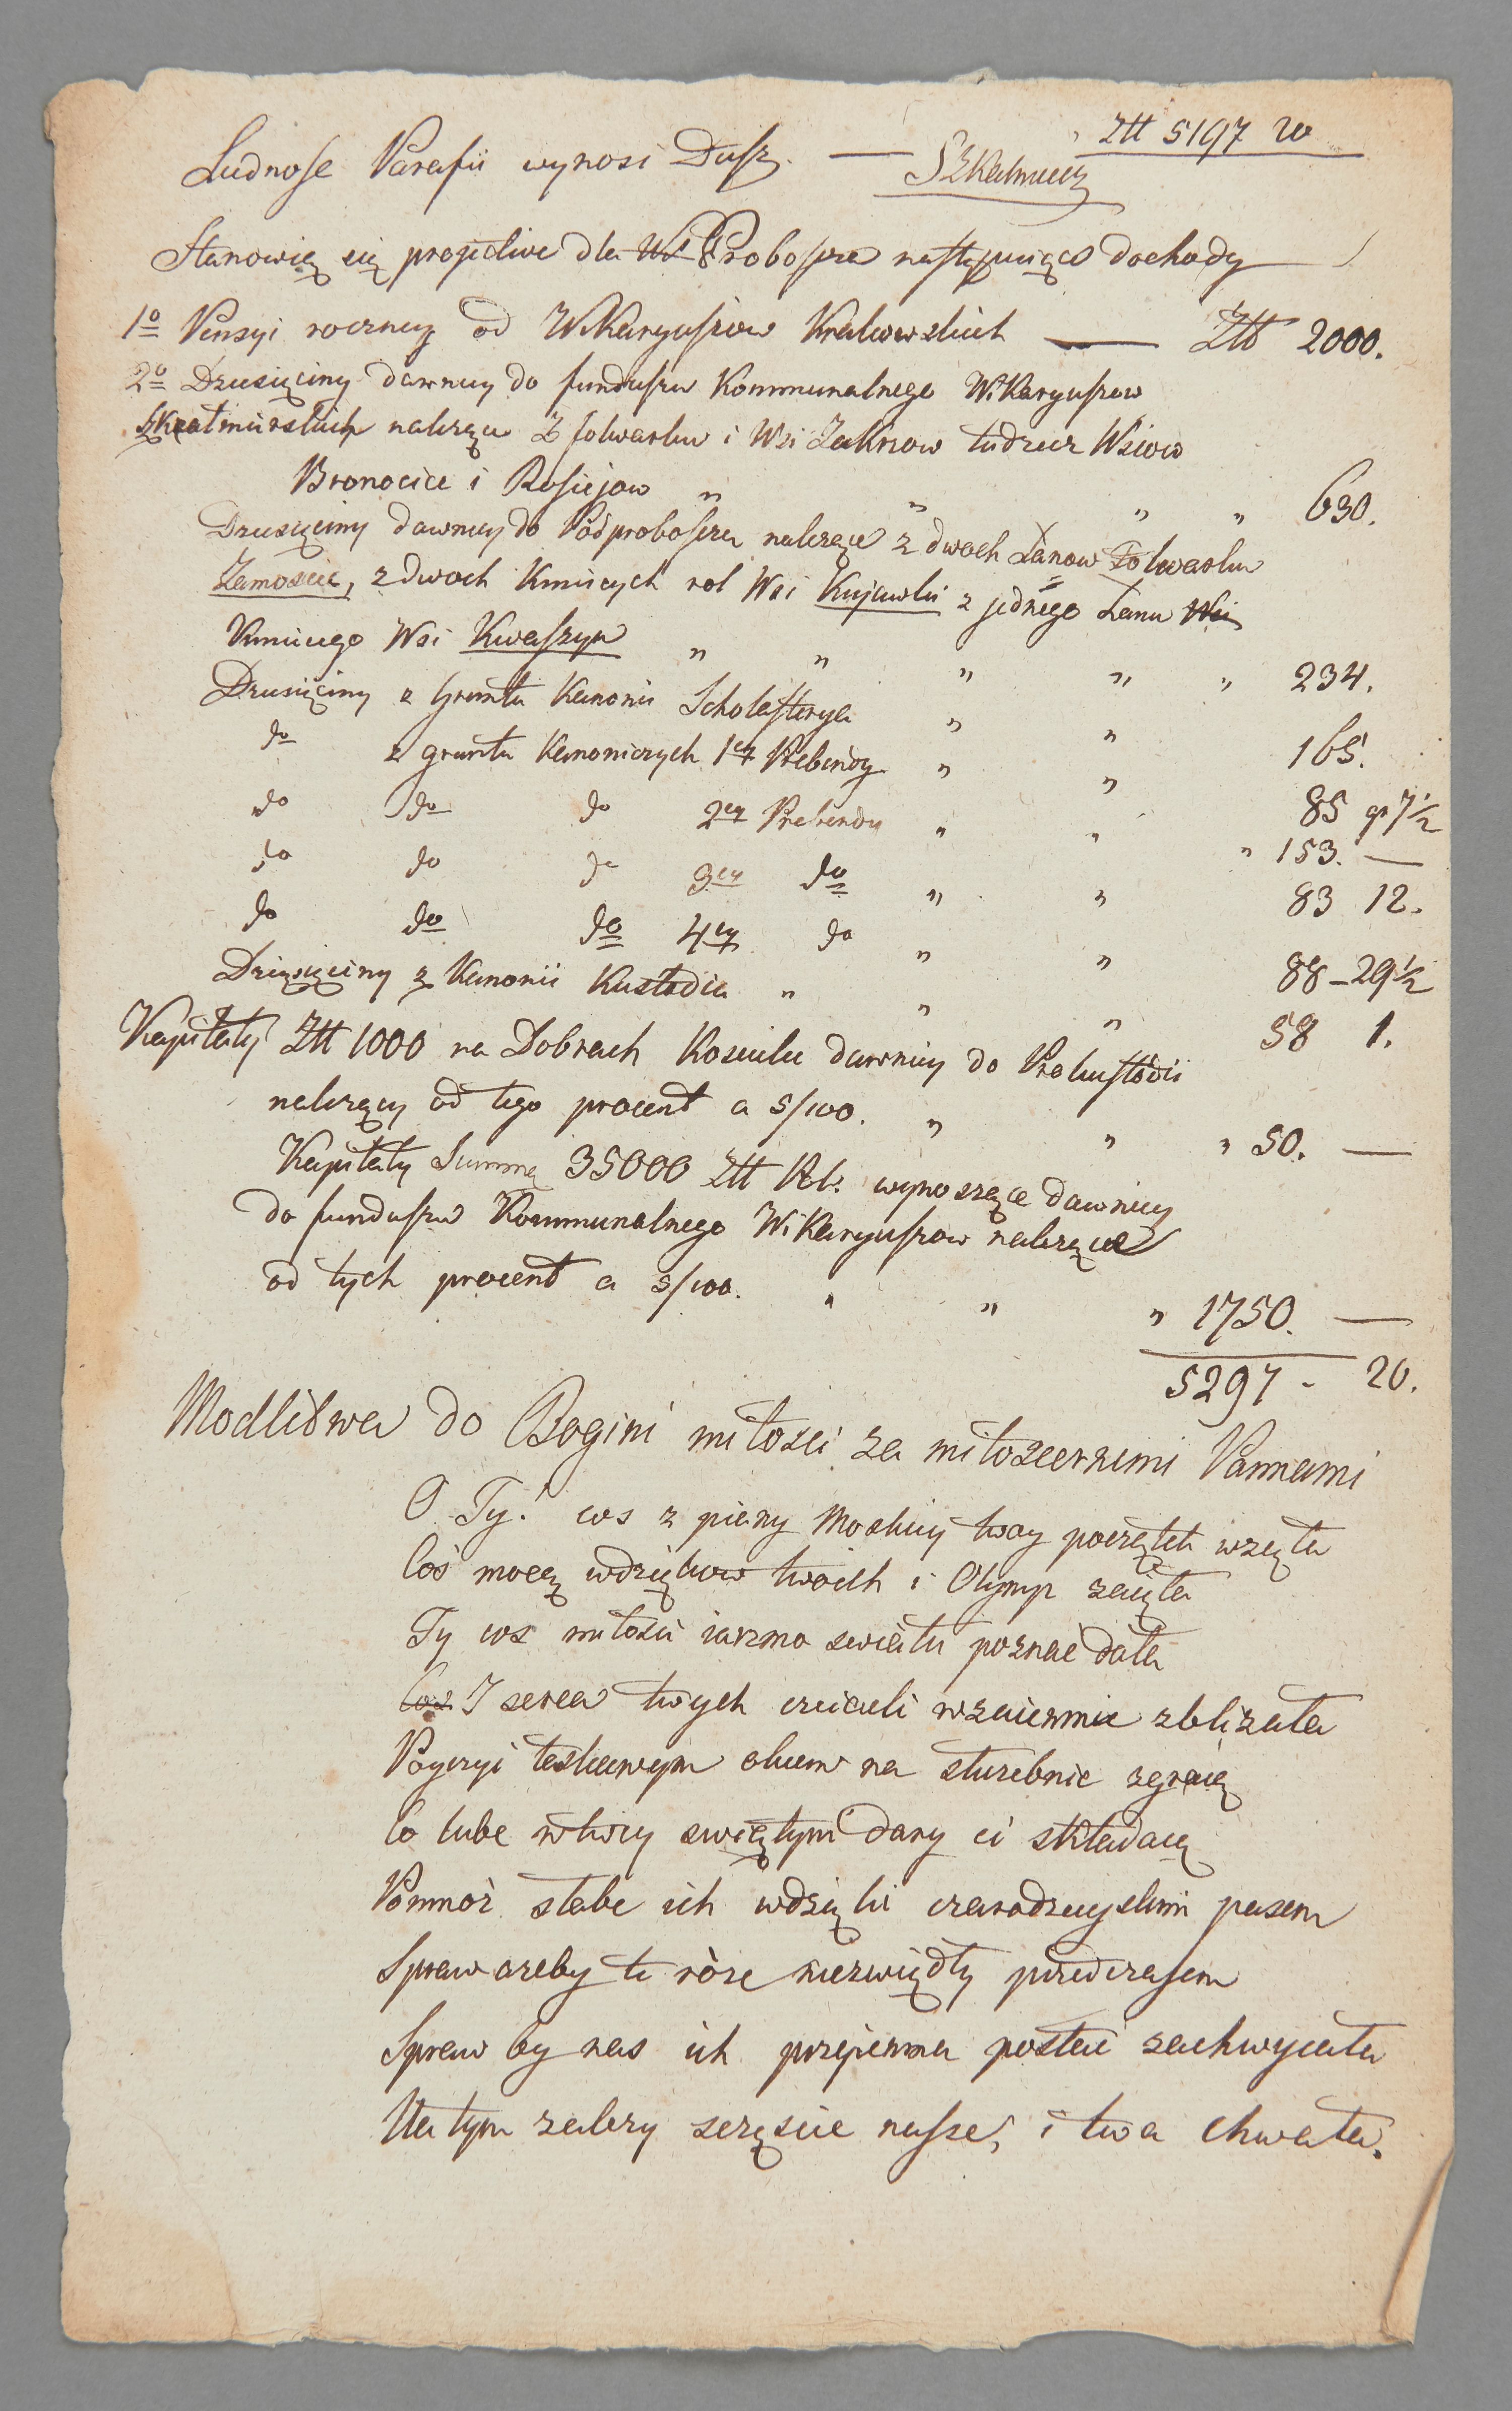 Ludnosc Parafii wynosi Dusz. — Złł 5197 20
Szkalmierz
Stanowią się projective dla Probosza następuiące dochody
1o Pensyi roczney od Wikaryuszow Krakowskich — Złł 2000.
2o Dziesięciny dawniey do funduszu Kommunalnego Wikaryuszow
Skalmirskich należące Z folwarku i Wsi Zakrzow tudzież Wsiow
Bronocice i Rosiejow " " " " 630.
Dziesięciny dawniey do Podprobosza należące z dwoch Łanow Folwarku
Zamoscie, z dwoch Kmiecych rol Wsi Kujawki z jednego Łanu Wsi
Kmiecego Wsi Kwaszyn " " " " " 234.
Dziesięciny z Gruntu Kanonii Scholasterya " " 165.
do z gruntu Kanoniczych 1ey Prebendy " " 85 gr 7½
do do do 2ey Prebendy " " " 153. —
do do do 3ey do " " 83 12.
do do do 4ey do " " 88 – 29½
Dziesięciny z Kanonii Kustodia " " " 58 1.
Kapitały Złł 1000 na Dobrach Kosciele dawniey do Prekustodii
należący od tego procent a 5/100. " " " 50. —
Kapitały Summę 35000 Złł Pol. wynoszące dawniey
do funduszu Kommunalnego Wikaryuszow należące
od tych procent a 5/100. " " " 1750. —
5297 - 20.
Modlitwa do Bogini miłosci za miłosiernemi Pannami
O Ty! cos z piany Morskiey twoy początek wzięła
Coś mocą wdzięków twoich i Olymp zaięła
Ty cos miłosci iarzmo swiatu poznać dała
Cos I serca twych czcicieli wzaiemnie zbliżała
Poyrzyi łaskawym okiem na służebnic zgraię
Co lube w twey swiątyni dary ci składaią
Pomnoż słabe ich wdzięki czarodzieyskim pasem
Spraw azeby te róże niezwiędły przedczasem
Spraw by nas ich przyiemna postać zachwycała
Na tym zależy szczęscie nasze, i twa chwała.